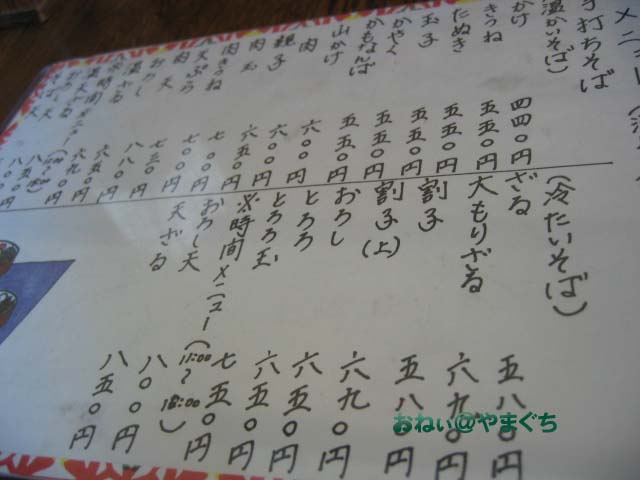 メニュー
手打ちそば
(温かいそば)
かけ 四四〇円
きつね 五五〇円
たぬき 五五〇円
玉子 五五〇円
かやく 五五〇円
かもなんば 五五〇円
山かけ 六〇〇円
肉 六〇〇円
親子 六五〇円
肉玉 七〇〇円
肉きつね 七〇〇円
天ぷら 七三〇円
肉天 八八〇円
おろし 六五〇円
温ざる 六九〇円
(冷たいそば)
ざる 五八〇円
大もりざる 六九〇円
割子 五八〇円
割子(上) 六九〇円
おろし 六五〇円
とろろ 六五〇円
とろろ玉 七五〇円
※時間メニュー(11:00〜18:00)
おろし天 八〇〇円
天ざる 八五〇円
おねぃ@やまぐち